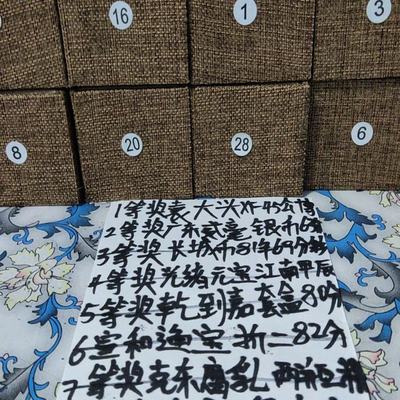 16
1
3
8
20
28
6
1等奖袁大头炸45公博
2等奖广东贰毫银币6
3等奖长城币81年69分
4等奖光绪元宝江南甲辰
5等奖乾到嘉套盒80分
6宣和通宝折二82分
7等奖克东腐乳两